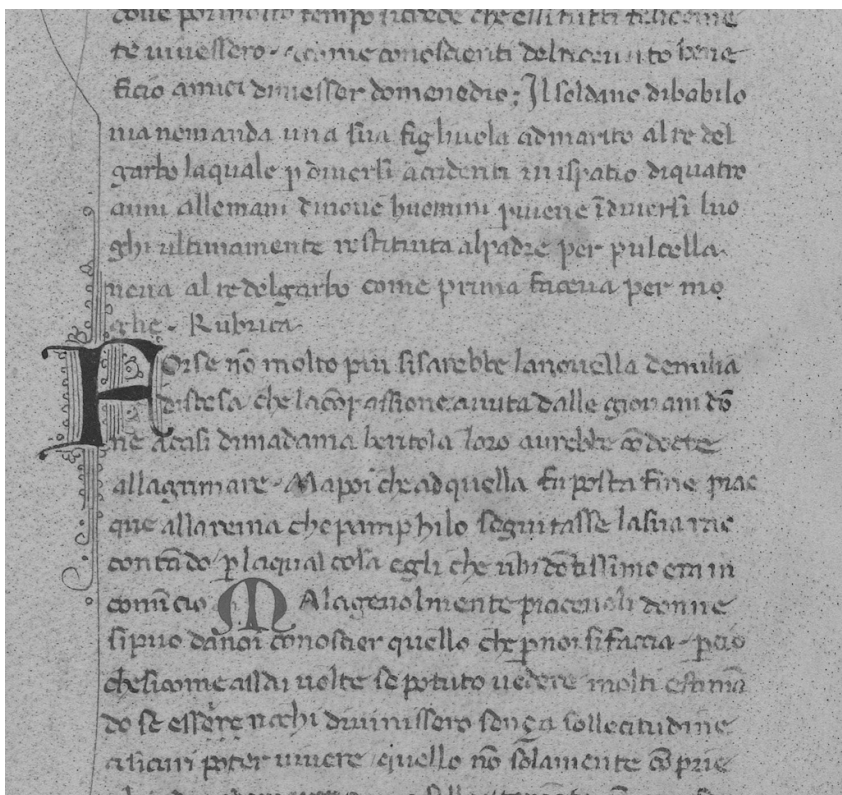 doue per molto tempo si crede che elli tutti feliceme
te uiuessero. come conoscienti del riceuuto bene
ficio amici di messer domenedio; Il soldano di babilo
nia ne manda una sua figliuola ad marito al re del
garbo la quale p diuersi accidenti in ispatio di quatro
anni alle mani di noue huomini puiene ī diuersi luo
ghi ultimamente restituita al padre per pulcella
neua al re del garbo come prima faceua per mo
glie. Rubrica
Forse nō molto piu si sarebbe la nouella demilia
distesa che la cōpassione auuta dalle giouani dō
ne a casi di madama beritola loro aurebbe cōdocte
allagrimare. Ma poi che ad quella fu posta fine piac
que alla reina che pamphilo seguitasse la sua me
contādo p la qual cosa egli che ubidētissimo era in
comīcio Malageuolmente piaceuoli donne
si puo da noi conoscier quello che p noi si faccia. pcio
che si come assai uolte se potuto uedere molti estimā
do se essere ricchi diuinissero sença sollecitudine
e sicuri poter uiuere quello nō solamente cō prie